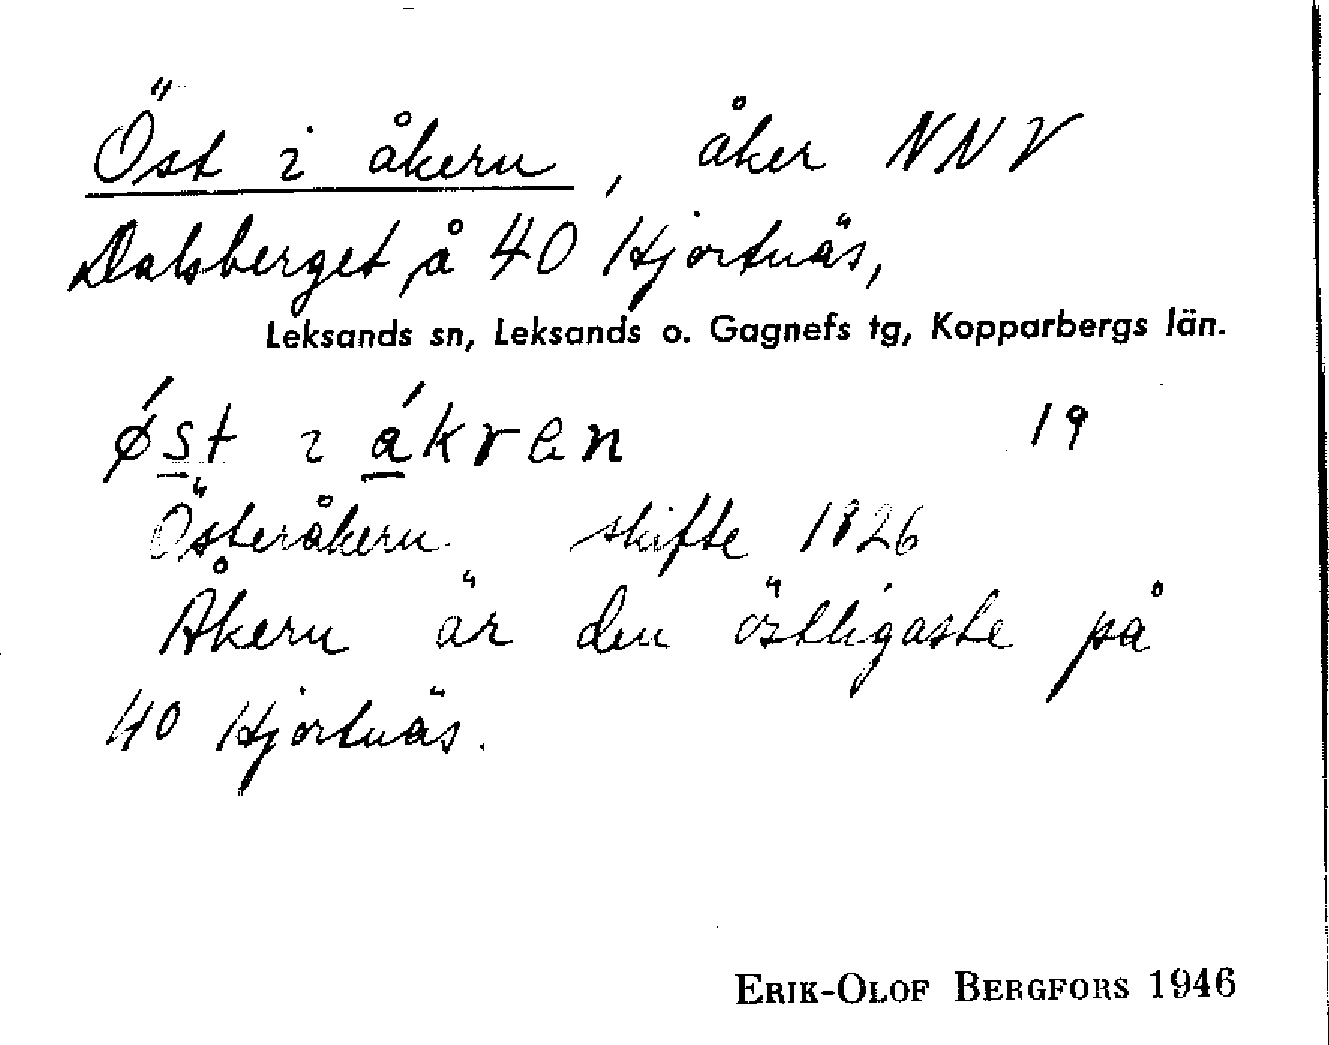 Öst i åkern, åker NNV
Dalsberget å 40 Hjortnäs,
Leksands sn, Leksands o. Gagnefs tg, Kopparbergs län.
ǿst ı ákrɐn 19
Österåkern. skifte 1826
Åkern är den östligaste på
40 Hjortnäs.
ERIK-OLOF BERGFORS 1946